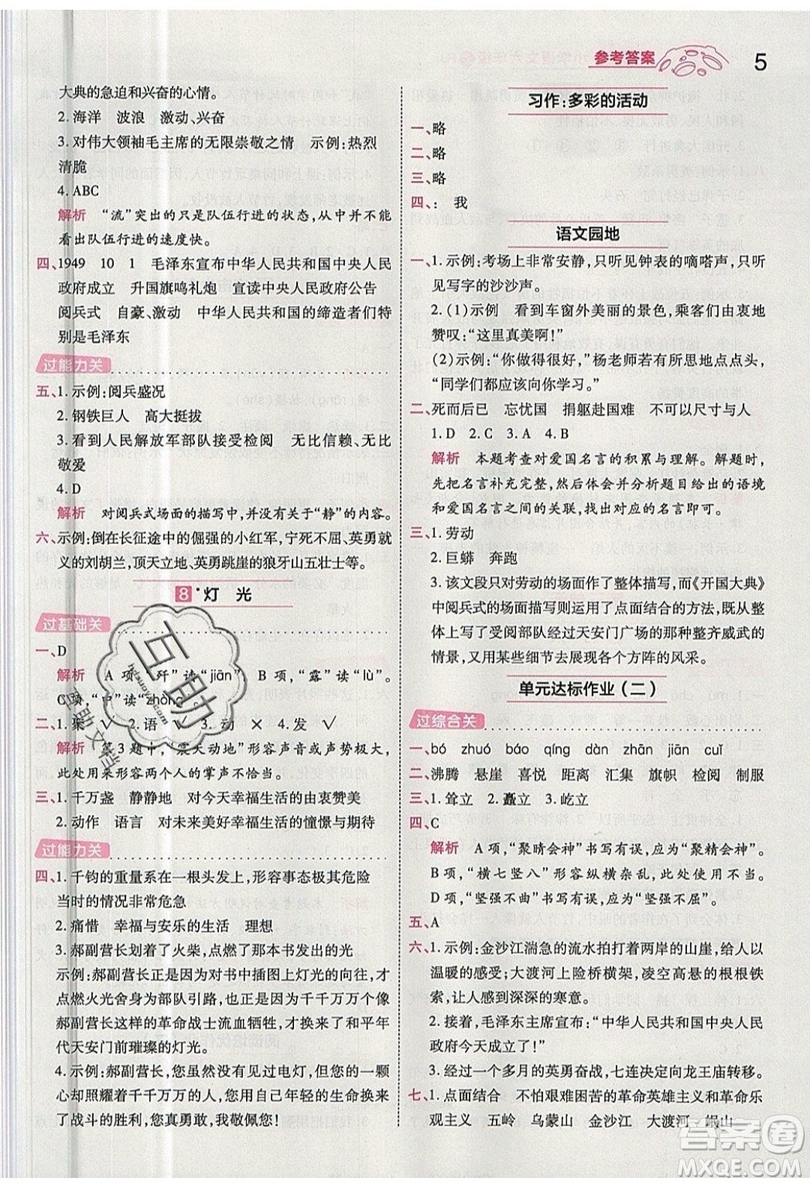 参考答案
5
大典的急迫和兴奋的心情。
2. 海洋 波浪 激动、兴奋
3. 对伟大领袖毛主席的无限崇敬之情 示例:热烈
清脆
4. ABC
解析 “流”突出的只是队伍行进的状态,从中并不能
看出队伍行进的速度快。
四、1949 10 1 毛泽东宣布中华人民共和国中央人民
政府成立 升国旗鸣礼炮 宣读中央人民政府公告
阅兵式 自豪、激动 中华人民共和国的缔造者们
特别是毛泽东
过能力关
五、1. 示例:阅兵盛况
2. 钢铁巨人 高大挺拔
3. 看到人民解放军部队接受检阅 无比信赖、无比
敬爱
4. D
解析 对阅兵式场面的描写中,并没有关于“静”的内容。
六、示例:倒在长征途中的倔强的小红军,宁死不屈、英勇就
义的刘胡兰,顶天立地、英勇跳崖的狼牙山五壮士等。
8* 灯 光
过基础关
一、D
解析 A 项,“间”读“jiān”。B 项,“露”读“lù”。
C 项,“中”读“zhòng”。
二、1. 渠 √ 2. 语 √ 3. 动 × 4. 发 √
解析 第 3 题中,“震天动地”形容声音或声势极大,
用来形容两个人的掌声不恰当。
三、1. 千万盏 静静地 对今天幸福生活的由衷赞美
2. 动作 语言 对未来美好幸福生活的憧憬与期待
过能力关
四、1. 千钧的重量系在一根头发上,形容事态极其危险
当时的情况非常危急
2. 痛惜 幸福与安乐的生活 理想
3. 郝副营长划着了火柴,点燃了那本书发出的光
示例:郝副营长点燃自己对书中插图上灯光的向往,才
点燃火光为部队引路,也才点亮了千千万万个像
郝副营长这样的革命战士流血牺牲,才有了和平年
代天安门前璀璨的灯光。
4. 示例:郝副营长,您虽没有见过电灯,但您用一颗
心却照耀着千千万万个人,您用自己年轻的生命换来
了战斗的胜利,您真勇敢,我敬佩您!
习作:多彩的活动
一、略
二、略
三、略
四、: 我
语文园地
一、1. 示例:考场上非常安静,只听见钟表的嘀嗒声,只听
见写字的沙沙声。
2. (1)示例 看到车窗外美丽的景色,乘客们由衷地
赞叹:“这里真美啊!”
(2)示例:“同学们好!”杨老师若有所思地点点头,
“同学们都应该向你学习。”
二、死而后已 忘忧国 捐躯赴国难 不可以尺寸与人
1. D 2. C 3. A 4. B
解析 本题考查对爱国名言的积累与理解。解题时,
先把名言补充完整,然后分析题目给出的情境
和爱国名言之间的关联,找出对应的名言即可。
三、1. 劳动
2. 巨蟒 奔跑
3. 该文段只对劳动的场面作了整体描写,而《开国大典》
中阅兵式的描写运用了点面结合的方法,既
描写了受阅部队经过天安门广场的整齐威武的
情景,又细致描写了各个方阵的风采。
单元达标作业(二)
过综合关
一、bó zhuó báo qíng dàn zhān jiān cuī
二、沸腾 悬崖 喜悦 距离 汇集 旗帜 检阅 制服
三、1. 耸立 2. 矗立 3. 屹立
四、C
解析 A 项,“聚晴会神”书写有误,应为“聚精会神”。
B 项,“横七竖八”形容纵横杂乱,此处使用不恰当。
D 项,“坚强不曲”书写有误,应为“坚强不屈”。
五、A
六、1. 示例:金沙江湍急的流水拍打着两岸的山崖,给人以
温暖的感觉;大渡河上险桥横架,凌空高悬的根根铁
索,让人感到深深的寒意。
2. 接着,毛泽东主席宣布:“中华人民共和国中央人民
政府今天成立了。”
3. 经过一个多月的英勇奋战,七连决定向龙王庙转移。
七、1. 点面结合 不怕艰难困苦的革命英雄气概和革命乐
观主义 五岭 乌蒙山 金沙江 大渡河 岷山
互助
互助文档
答案圈
MXQE.COM